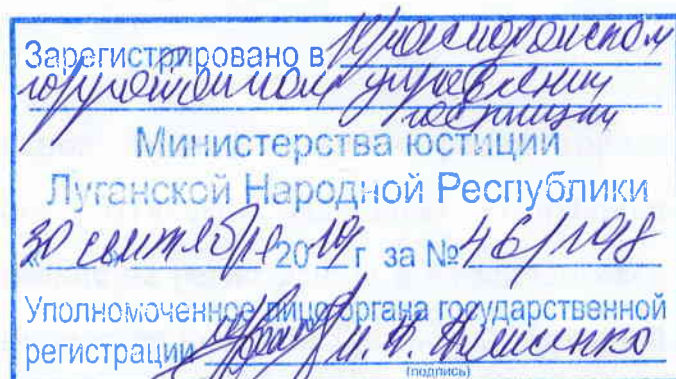 Зарегистрировано в Краснодонском
городском управлении
юстиции
Министерства юстиции
Луганской Народной Республики
«30» сентября 2019 г за № 46/1098
Уполномоченное лицо органа государственной
регистрации
(подпись)